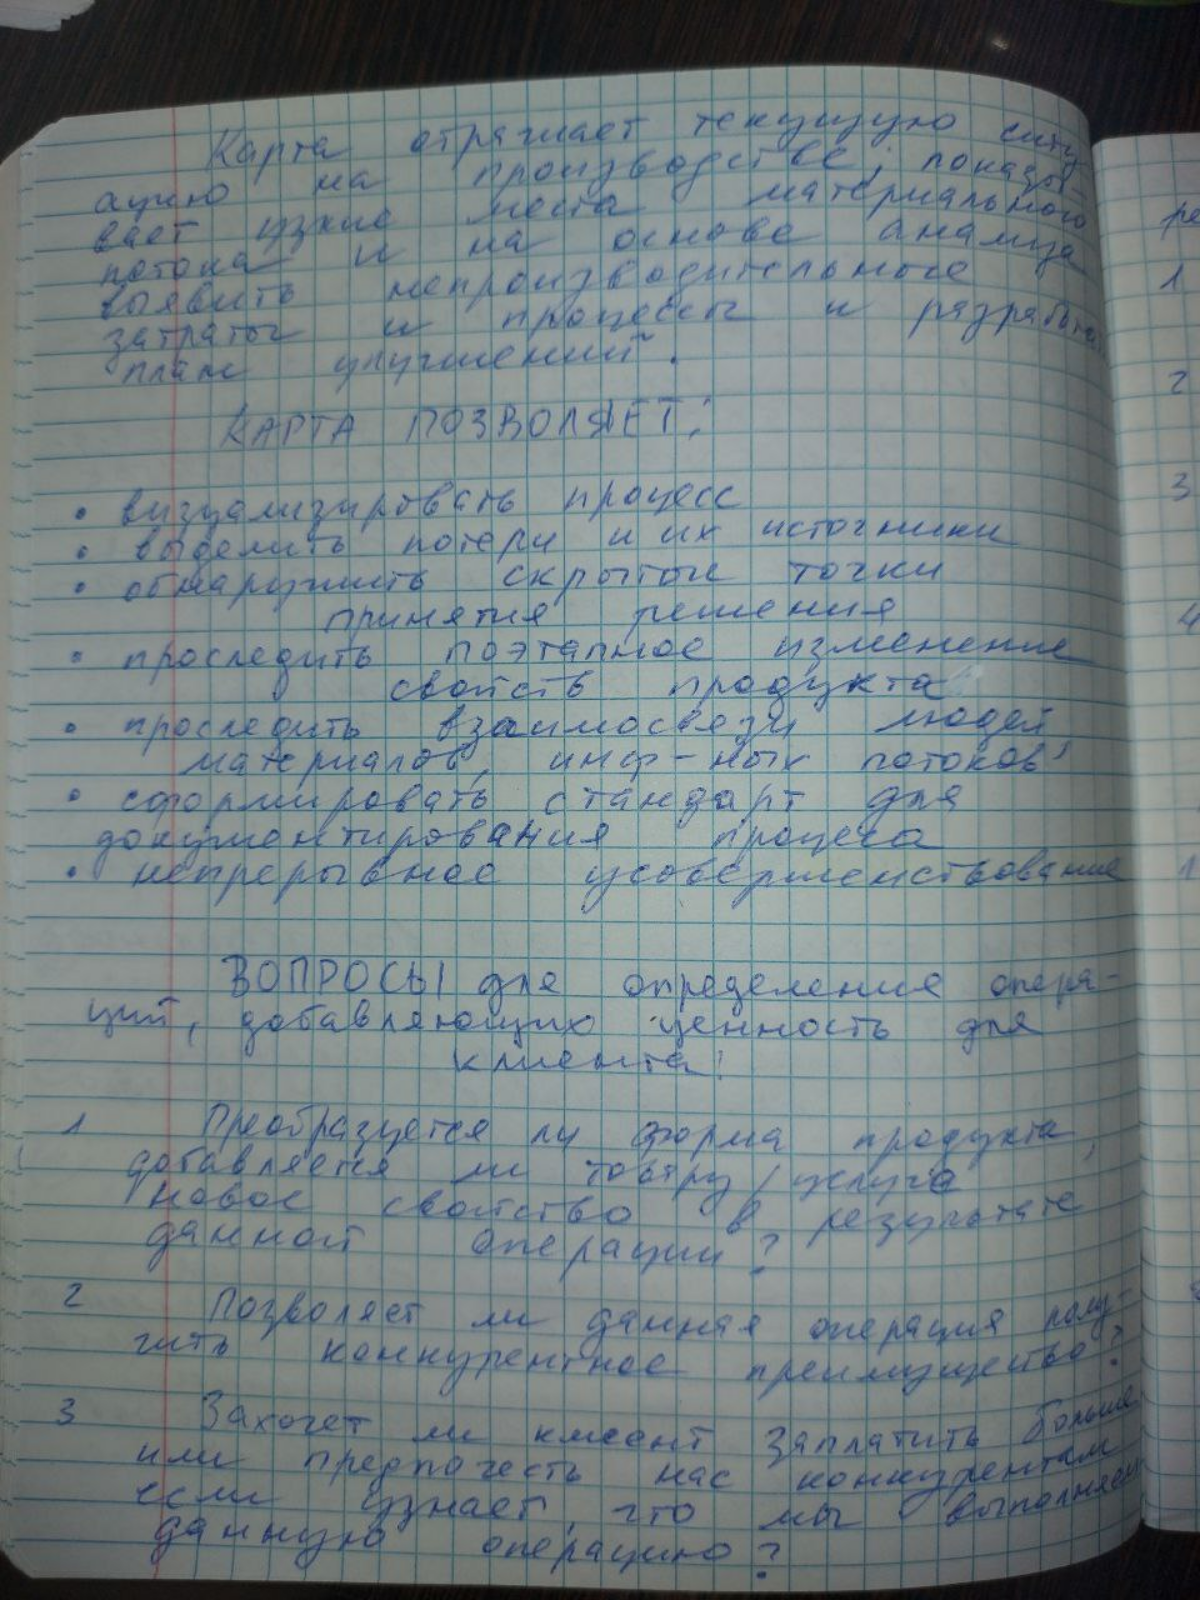 Карта отражает текущую ситу
ацию на производстве, показы-
вает узкие места материального
потока и на основе анализа
выявить непроизводительные
затраты и процессы и разработать
план улучшений.
КАРТА ПОЗВОЛЯЕТ:
• визуализировать процесс
• выделить потери и их источники
• обнаружить скрытые точки
принятия решения
• проследить поэтапное изменение
свойств продукта
• проследить взаимосвязи людей
материалов, инф-ных потоков
• сформировать стандарт для
документирования процесса
• непрерывное усовершенствование
ВОПРОСЫ для определения опера-
ций, добавляющих ценность для
клиента:
1 Преобразуется ли форма продукта,
добавляется ли товару/услуге
новое свойство в результате
данной операции?
2 Позволяет ли данная операция полу-
чить конкурентное преимущество?
3 Захочет ли клиент заплатить больше
или предпочесть нас конкурентам
если узнает, что мы выполняем
данную операцию?
1
2
3
4
1